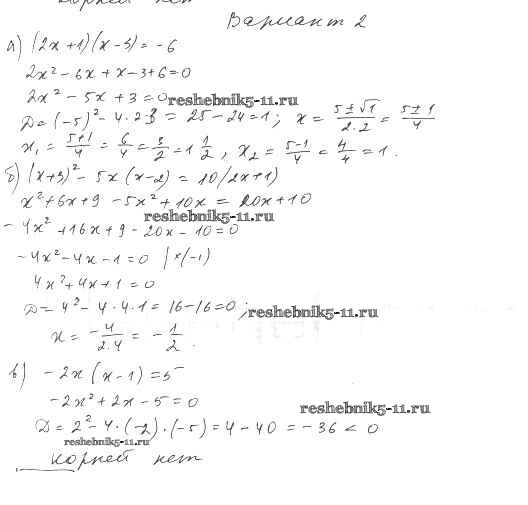 корней нет
Вариант 2
а) (2x+1)(x-3)=-6
2x²-6x+x-3+6=0
2x²-5x+3=0
reshebnik5-11.ru
D=(-5)²-4·2·3=25-24=1; x=(5±√1)/(2·2)=(5±1)/4
x₁=(5+1)/4=6/4=3/2=1 1/2, x₂=(5-1)/4=4/4=1.
б) (x+3)²-5x(x-2)=10(2x+1)
x²+6x+9-5x²+10x=20x+10
reshebnik5-11.ru
-4x²+16x+9-20x-10=0
-4x²-4x-1=0 |×(-1)
4x²+4x+1=0
D=4²-4·4·1=16-16=0;
reshebnik5-11.ru
x=-4/(2·4)=-1/2.
в) -2x(x-1)=5
-2x²+2x-5=0
reshebnik5-11.ru
D=2²-4·(-2)·(-5)=4-40=-36<0
reshebnik5-11.ru
корней нет